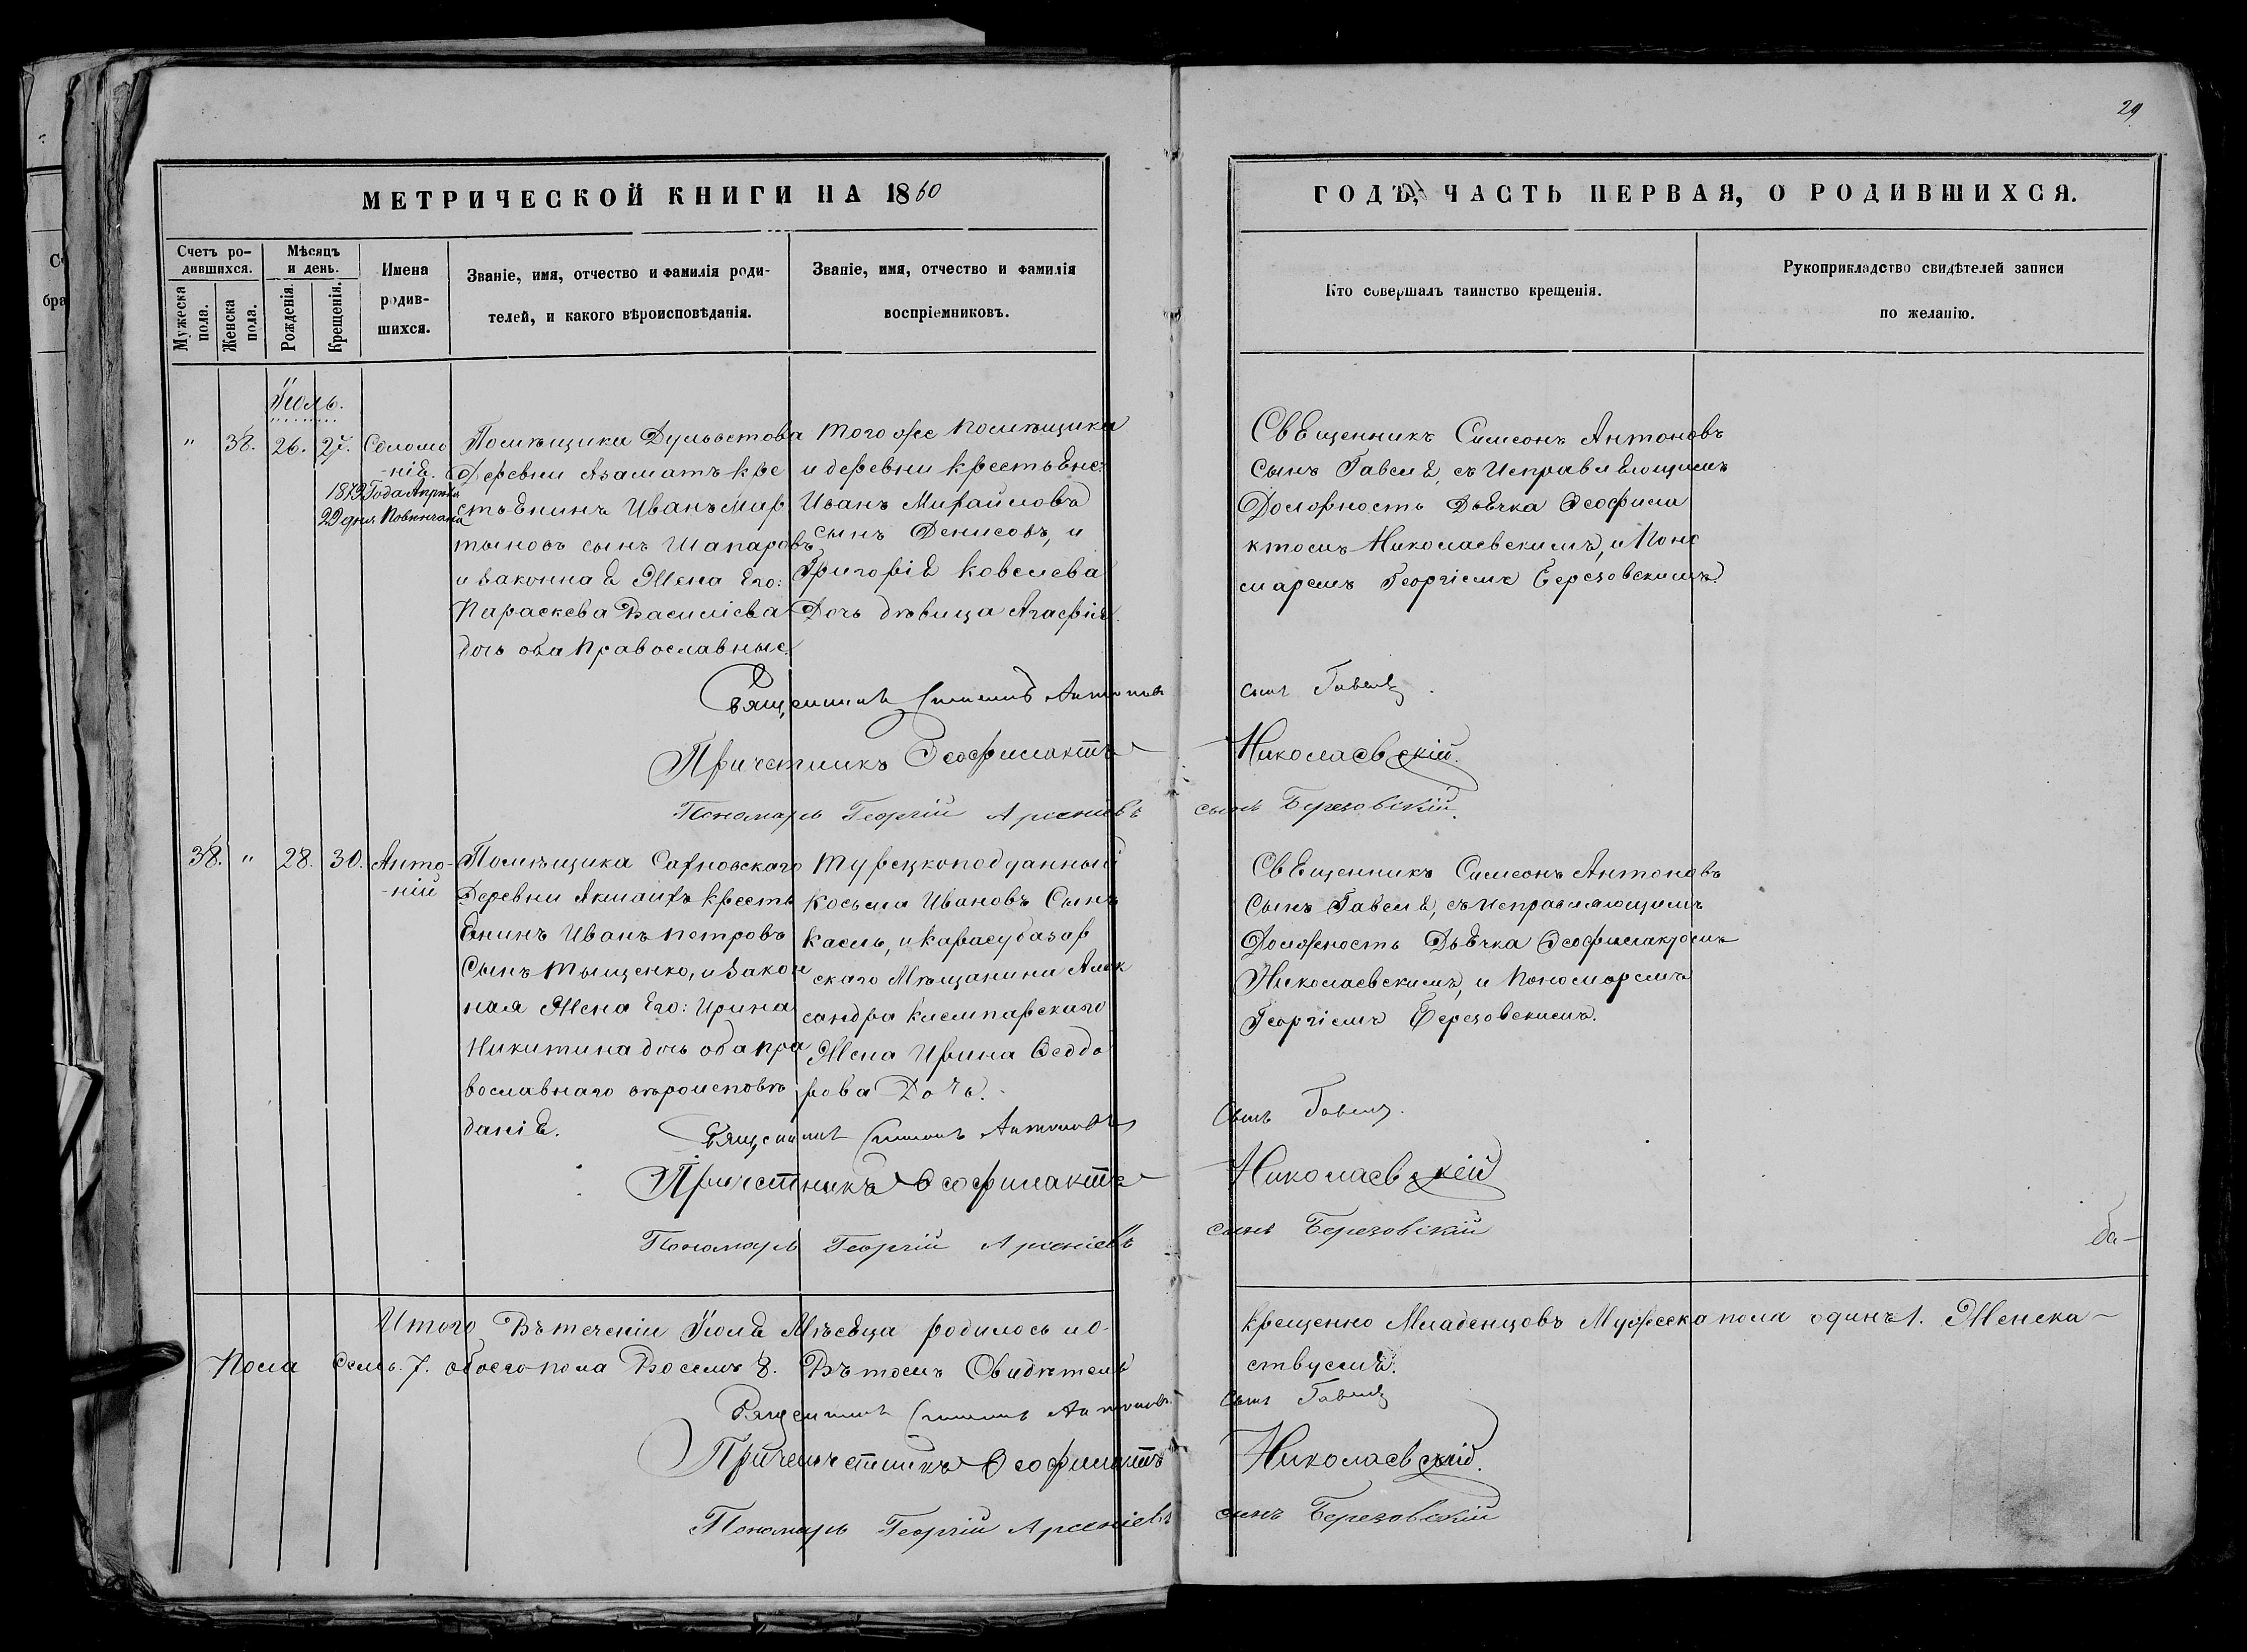 29
МЕТРИЧЕСКОЙ КНИГИ НА 1860
ГОДЪ, ЧАСТЬ ПЕРВАЯ, О РОДИВШИХСЯ.
Счетъ ро-
дившихся.
Мужеска пола.
Женска пола.
Мѣсяцъ
и день.
Рожденія.
Крещенія.
Имена
родив-
шихся.
Званіе, имя, отчество и фамилія роди-
телей, и какого вѣроисповѣданія.
Званіе, имя, отчество и фамилія
воспріемниковъ.
Кто совершалъ таинство крещенія.
Рукоприкладство свидѣтелей записи
по желанію.
Іюль.
" 38. 26. 27. Соломо
-нія.
1879 Года Апрѣля
22 дня Повѣнчана
Помѣщика
Деревни Азаматъ кре
стьянинъ Иванъ Мар
тыновъ сынъ Шапаровъ
и Законная Жена Его:
Параскева Василіева
дочь оба Православные
Того же помѣщика
и деревни крестьяне:
Иванъ Михайловъ
сынъ Денисовъ, и
Григорія Ковелева
Дочь дѣвица Агафія.
Священникъ Симеонъ Антоновъ
Сынъ Гавеля, съ Исправляющимъ
Должность Дьячка Ѳеофила
ктомъ Николаевскимъ, и Поно
маремъ Георгіемъ Березовскимъ
Священникъ Симеонъ Антоновъ сынъ Гавеля.
Причетникъ Ѳеофилактъ Николаевскій.
Пономарь Георгій Арсеніевъ сынъ Березовскій.
38. " 28. 30. Анто-
-ній
Помѣщика
Деревни Якмаихъ кресть
янинъ Иванъ Петровъ
Сынъ Тыщенко, и Закон
ная Жена Его: Ирина
Никитина дочь оба пра
вославнаго вѣроисповѣ
данія.
Турецкоподданный
Косьма Ивановъ Сынъ
Касль, и Карасубазар
скаго Мѣщанина Алек
сандра Клемпарскаго
Жена Ирина Ѳеддо
рова Дочь.
Священникъ Симеонъ Антоновъ
Сынъ Гавеля, съ Исправляющимъ
Должность Дьячка Ѳеофилактомъ
Николаевскимъ, и Пономаремъ
Георгіемъ Березовскимъ.
Священникъ Симеонъ Антоновъ Сынъ Гавеля.
Причетникъ Ѳеофилактъ Николаевскій
Пономарь Георгій Арсеніевъ сынъ Березовскій
Итого Въ теченіи Іюля Мѣсяца родилось и о- крещенно Младенцовъ Мужеска пола одинъ 1. Женска-
Пола Семь. 7. обоего пола Восемь 8. Въ томъ Свидѣтель ствуемъ.
Священникъ Симеонъ Антоновъ Сынъ Гавеля
Николаевскій.
Пономарь Георгій Арсеніевъ сынъ Березовскій